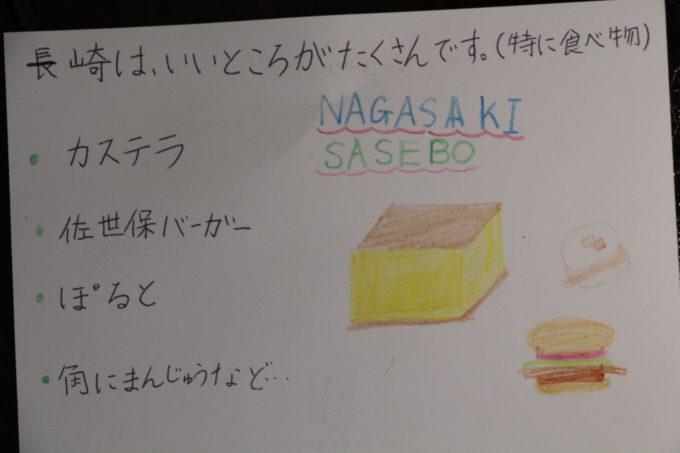 長崎は、いいところがたくさんです。(特に食べ物)
NAGASAKI
SASEBO
・カステラ
・佐世保バーガー
・ぽると
・角にまんじゅうなど…